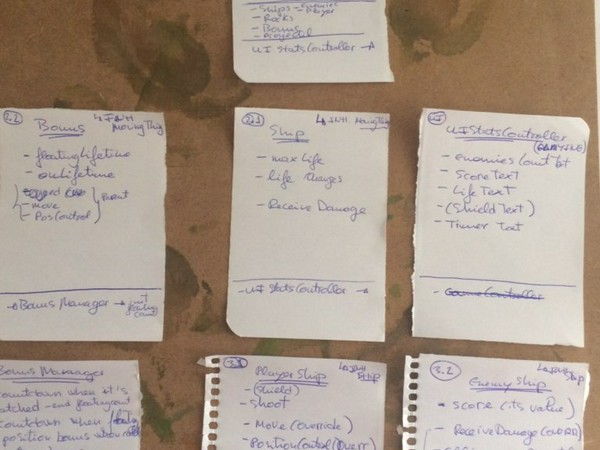 - Ships - Enemies
- Player
- Rocks
- Bonus
UI StatsController →
2.2
Bonus
↳ INH
MovingThing
- floatingLifetime
- onLifetime
- move
- PosControl
Parent
→ Bonus Manager →
2.1
Ship
↳ INH MovingThing
- max Life
- life changes
- Receive Damage
- UI StatsController →
UIStatsController
- Enemies Count txt
- ScoreText
- Life Text
- (Shield Text)
- Timer Text
- GameController
Bonus Manager
countdown when it's
countdown when
position bonus
3.1
Player Ship
Ship
- (Shield)
- Shoot
- Move (override)
- PositionControl (Overr)
3.2
Enemy Ship
Ship
- Score (its value)
- ReceiveDamage (Overr)